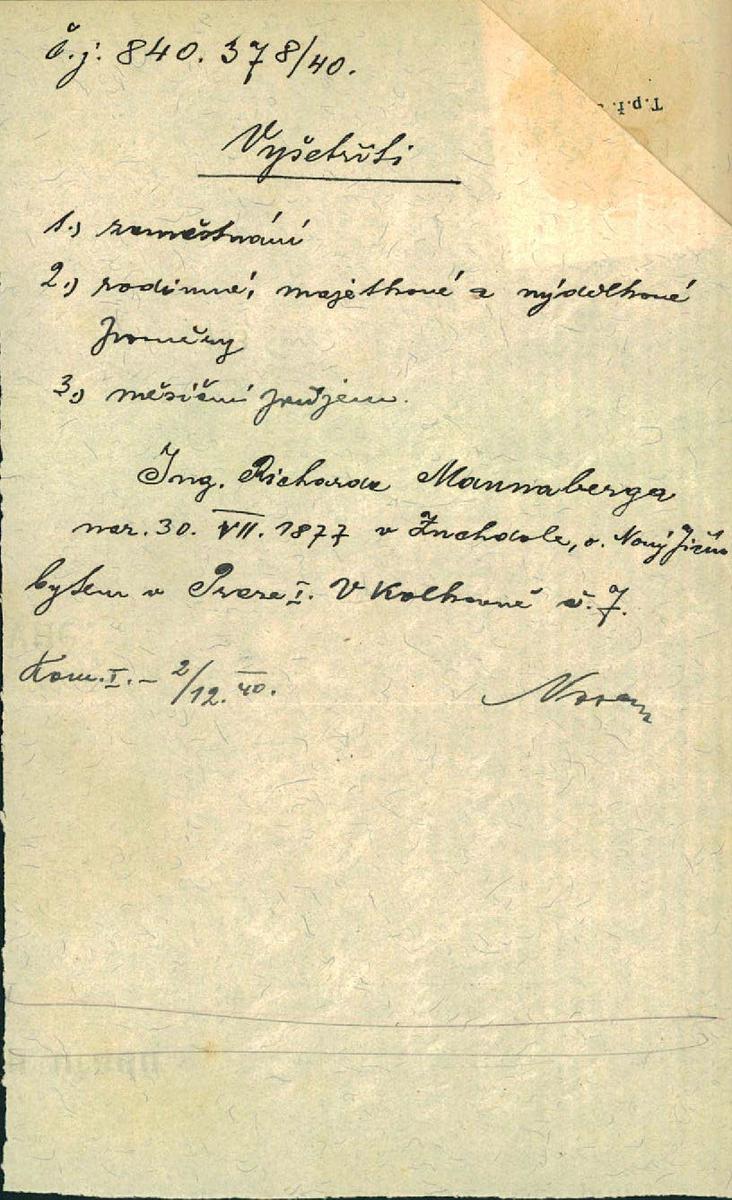 č.j: 840.378/40.
T.p.ř.
Vyšetřiti
1.) zaměstnání
2.) rodinné, majetkové a výdělkové
poměry
3.) měsíční příjem.
Ing. Richarda Mannaberga
nar. 30. VII. 1877 v Zuchdole, o. Nový Jičín
bytem v Praze I. V Kolkovně č. 7.
Kom. I. - 2/12. 40.